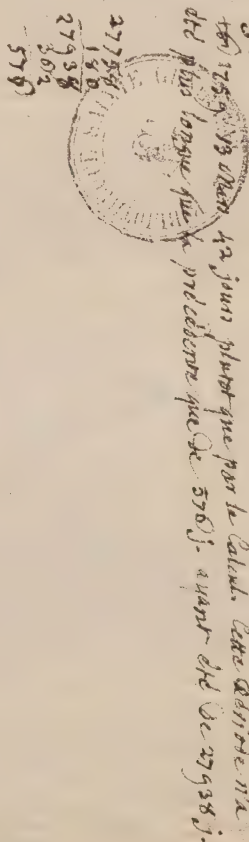 1759 13 Mars 32 jours plutot que par le Calcul. Cette Periode n'a
été plus longue que la precedente que de 576 j. ayant été de 27938 j.
27758
180
27938
302
576